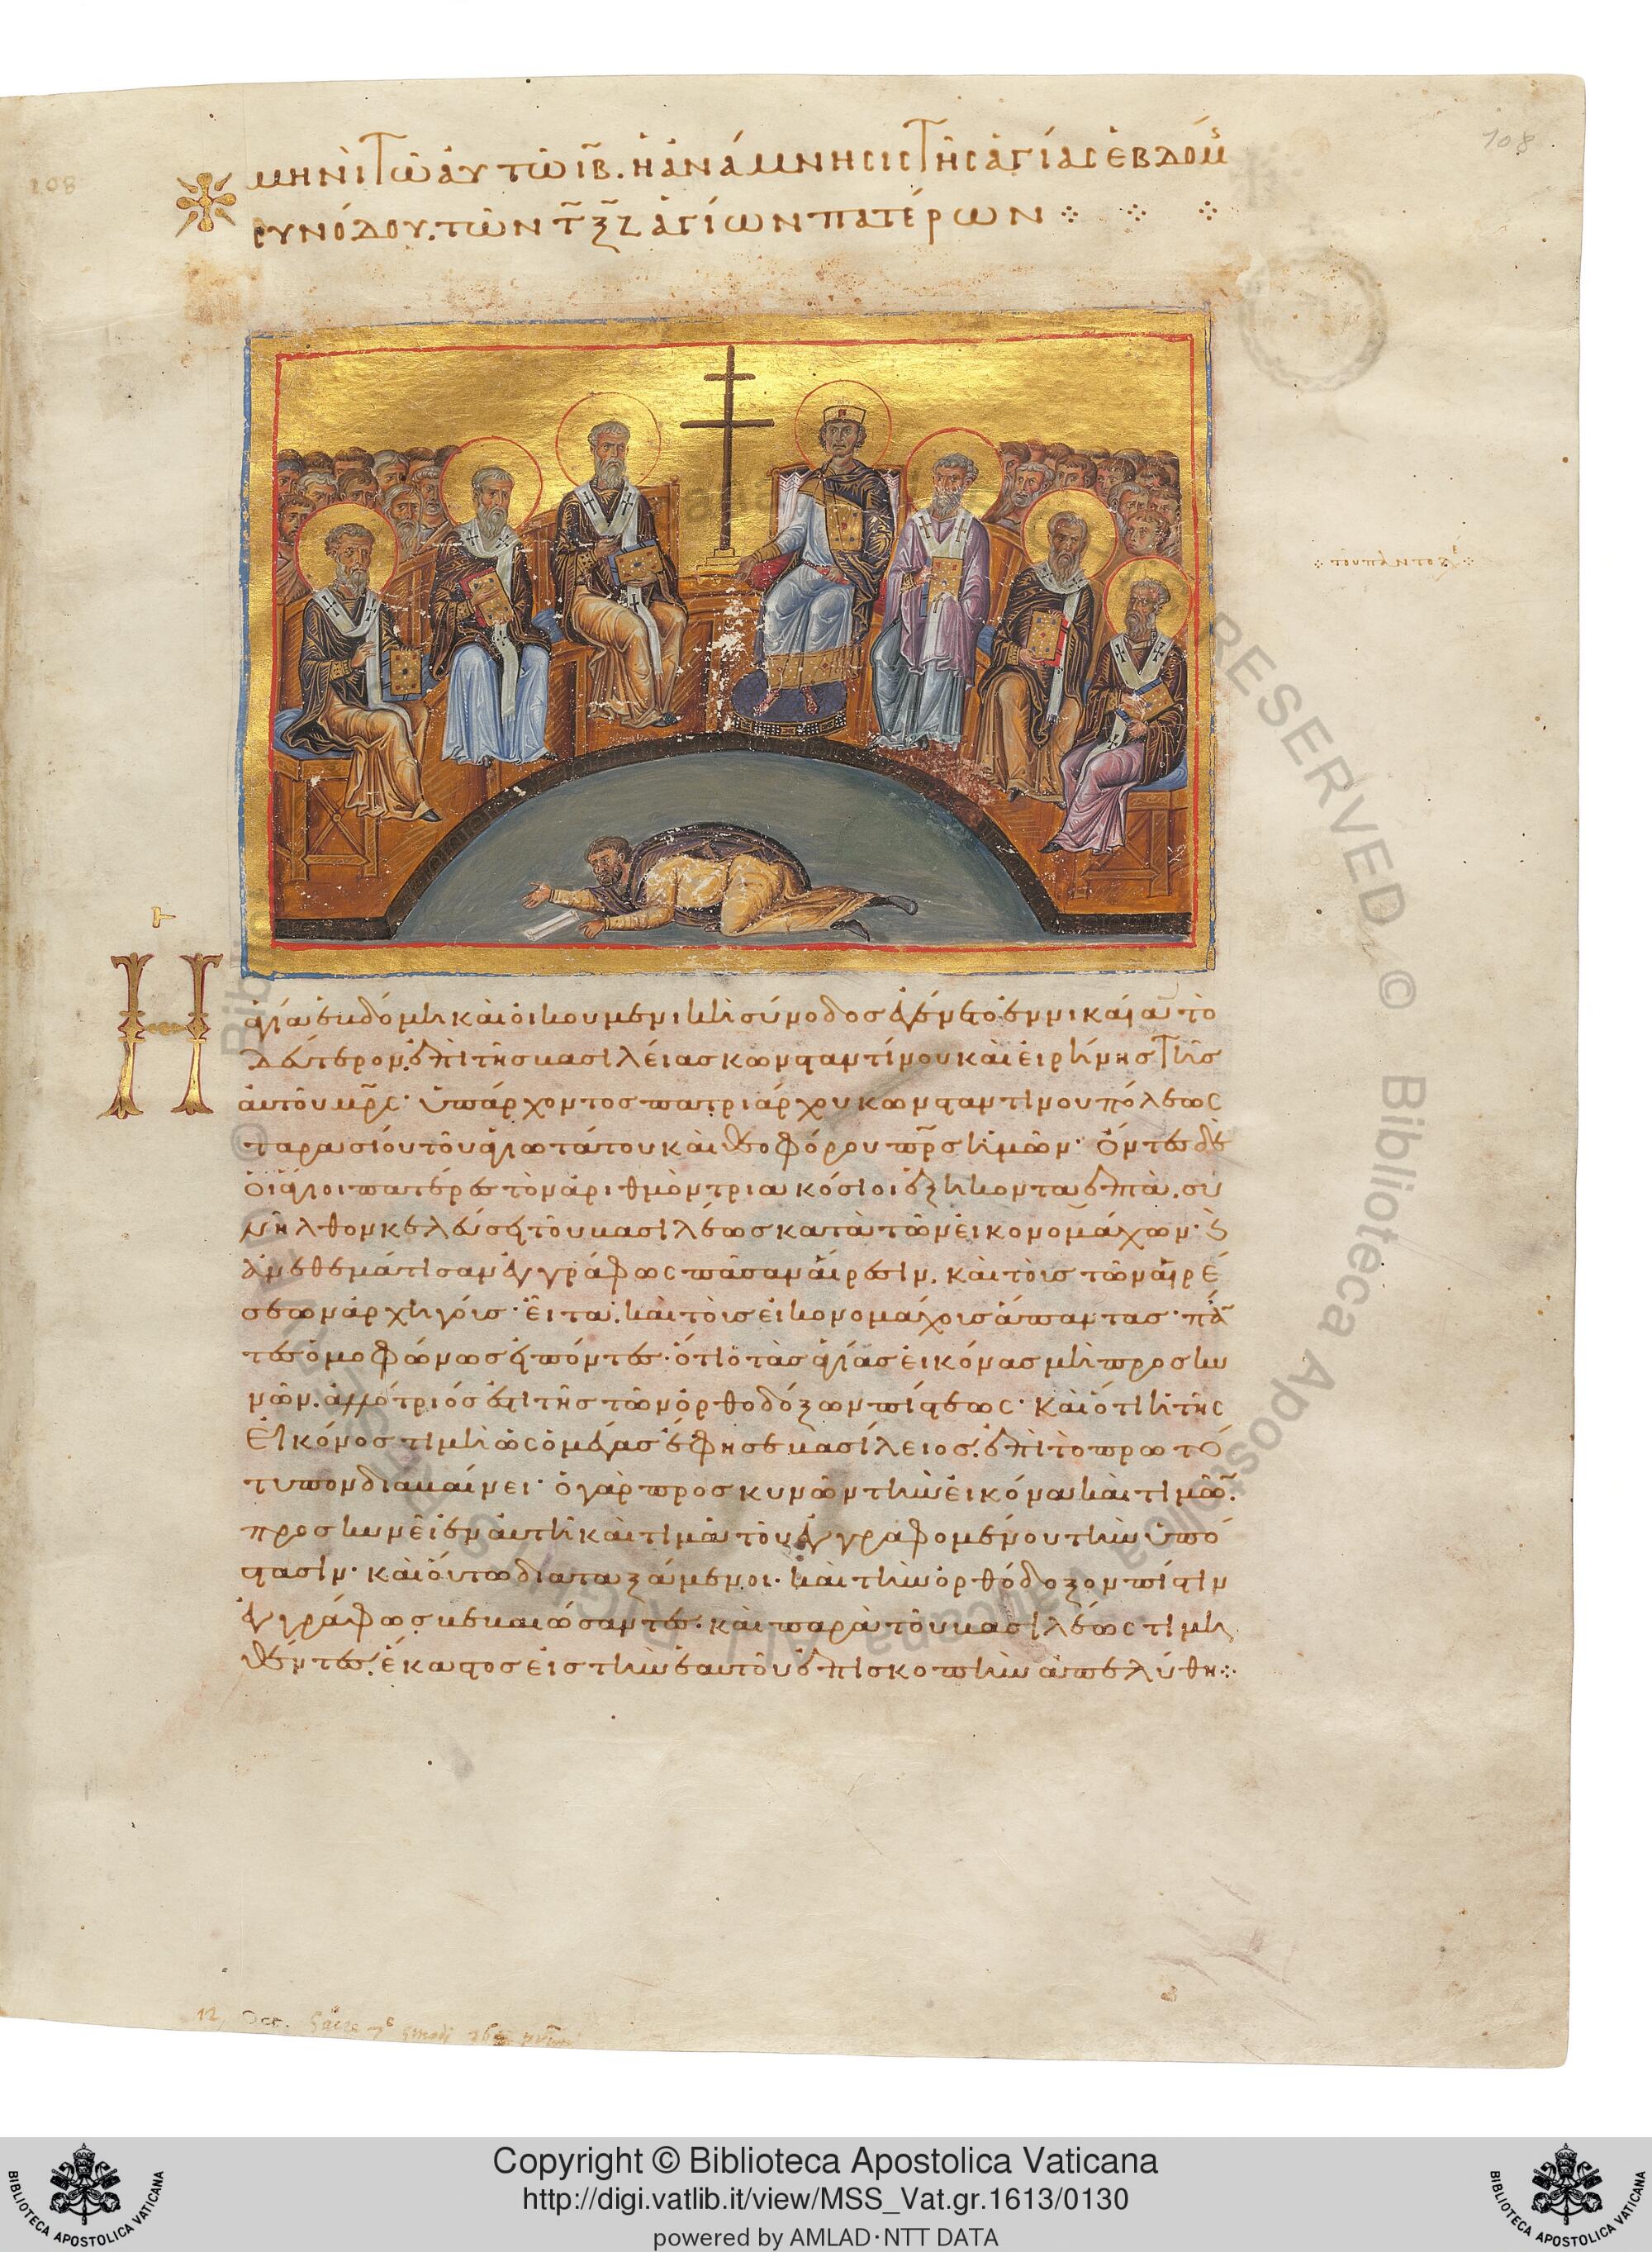 108
108
μηνὶ Τῶ ἀυτῶ ιβ. ἡ ἀνάμνησις Τῆς ἁγίας ἑβδόμς
συνόδου. τῶν τξζ ἁγίων πατέρων
Ἡ ἁγία ἑβδόμη καὶ οἰκουμενικὴ σύνοδος γέγονεν ἐν νικαία τὸ
δεύτερον. ἐπὶ τῆς βασιλείας κωνσταντίνου καὶ εἰρήνης Τῆς
αὐτοῦ μρς· ὑπάρχοντος πατριάρχου κωνσταντίνου πόλεως
ταρασίου τοῦ ἁγιωτάτου καὶ θεοφόρου πρς ἡμῶν· ὄντες δὲ
οἱ ἅγιοι πατέρες τὸν ἀριθμὸν τριακόσιοι ἑξήκοντα ἑπτὰ. συ
νῆλθον κελεύσει τοῦ βασιλέως κατὰ τῶν εἰκονομάχων· καὶ
ἀνεθεμάτισαν ἐγγράφως πᾶσαν αἵρεσιν. καὶ τοῖς τῶν αἱρέ
σεων ἀρχηγοῖς· εἶτα. καὶ τοῖς εἰκονομάχοις ἅπαντας· πάν
τες ὁμοφώνως εἰπόντες· ὅτι ὁ τὰς ἁγίας εἰκόνας μὴ προσκυ
νῶν. ἀλλότριός ἐστι τῆς τῶν ὀρθοδόξων πίστεως· καὶ ὅτι ἡ τῆς
εἰκόνος τιμὴ ὡς ὁ μέγας ἔφησε βασίλειος. ἐπὶ τὸ πρωτό
τυπον διαβαίνει· ὁ γὰρ προσκυνῶν τὴν εἰκόνα καὶ τιμῶν.
προσκυνεῖ ἐν αὐτῆ καὶ τιμᾶ τοῦ ἐγγραφομένου τὴν ὑπό
στασιν· καὶ οὕτω διαταξάμενοι. καὶ τὴν ὀρθόδοξον πίστιν
ἐγγράφως βεβαιώσαντες. καὶ παρὰ τοῦ βασιλέως τιμη
θέντες. ἕκαστος εἰς τὴν ἑαυτοῦ ἐπισκοπὴν ἀπελύθη
12, Oct.
© Biblioteca Apostolica Vaticana
ALL RIGHTS RESERVED
Copyright © Biblioteca Apostolica Vaticana
http://digi.vatlib.it/view/MSS_Vat.gr.1613/0130
powered by AMLAD·NTT DATA
BIBLIOTECA APOSTOLICA VATICANA
BIBLIOTECA APOSTOLICA VATICANA